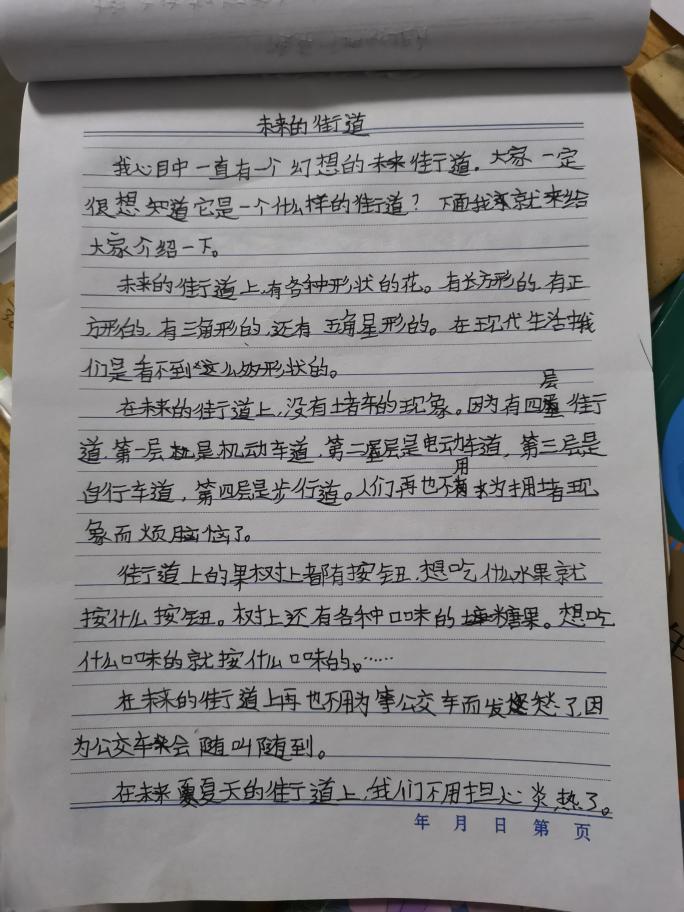 未来的街道
我心目中一直有一个幻想的未来街道。大家一定
很想知道它是一个什么样的街道？下面我就来给
大家介绍一下。
未来的街道上,有各种形状的花。有长方形的,有正
方形的,有三角形的,还有五角星形的。在现代生活中我
们是看不到这么多形状的。
在未来的街道上,没有堵车的现象。因为有四层街
道,第一层是机动车道,第二层是电动车道,第三层是
自行车道,第四层是步行道。人们再也不用为拥堵现
象而烦恼了。
街道上的果树上都有按钮,想吃什么水果就
按什么按钮。树上还有各种口味的糖果。想吃
什么口味的就按什么口味的。……
在未来的街道上再也不用为等公交车而发愁了,因
为公交车会随叫随到。
在未来夏天的街道上,我们不用担心炎热了。
年 月 日 第 页